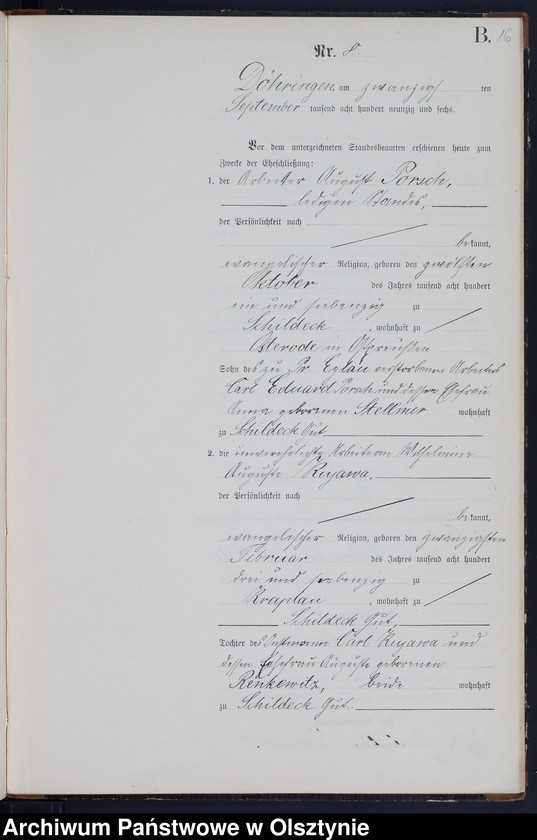 B. 16
Nr. 8.
Döhringen, am zwanzigsten
September tausend acht hundert neunzig und sechs.
Vor dem unterzeichneten Standesbeamten erschienen heute zum
Zwecke der Eheschließung:
1. der Arbeiter August Porsch,
ledigen Standes,
der Persönlichkeit nach
bekannt,
evangelischer Religion, geboren den zwölften
Oktober des Jahres tausend acht hundert
ein und siebenzig zu
Schildeck, wohnhaft zu
Osterode in Ostpreußen
Sohn des zu Pr. Eylau verstorbenen Arbeiters
Carl Eduard Porsch und dessen Ehefrau
Anna geborenen Stellmer wohnhaft
zu Schildeck Gut
2. die unverehelichte Arbeiterin Wilhelmine
Auguste Kujawa.
der Persönlichkeit nach
bekannt,
evangelischer Religion, geboren den zwanzigsten
Februar des Jahres tausend acht hundert
drei und siebenzig zu
Kraplau, wohnhaft zu
Schildeck Gut,
Tochter des Instmann Carl Kujawa und
dessen Ehefrau Auguste geborenen
Renkewitz, beide wohnhaft
zu Schildeck Gut.
Archiwum Państwowe w Olsztynie